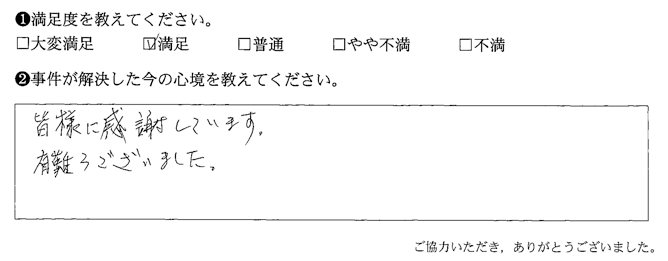 ❶満足度を教えてください。
□大変満足 ☑満足 □普通 □やや不満 □不満
❷事件が解決した今の心境を教えてください。
皆様に感謝しています。
有難うございました。
ご協力いただき，ありがとうございました。